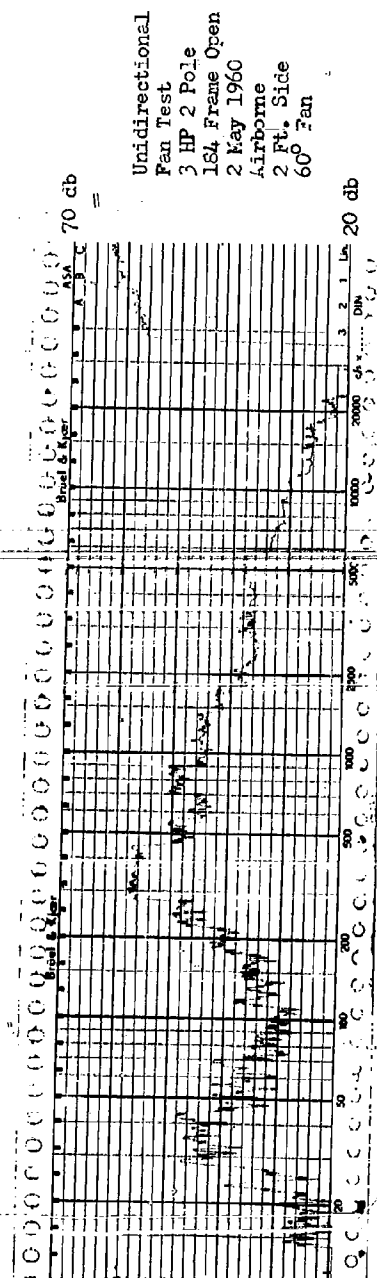 70 db
=
Unidirectional
Fan Test
3 HP 2 Pole
184 Frame Open
2 May 1960
Airborne
2 Ft. Side
60° Fan
20 db
Brüel & Kjær
Brüel & Kjær
ASA
A B C
20
50
100
200
500
1000
2500
5000
10000
20000
3 2 1 Lin.
DIN